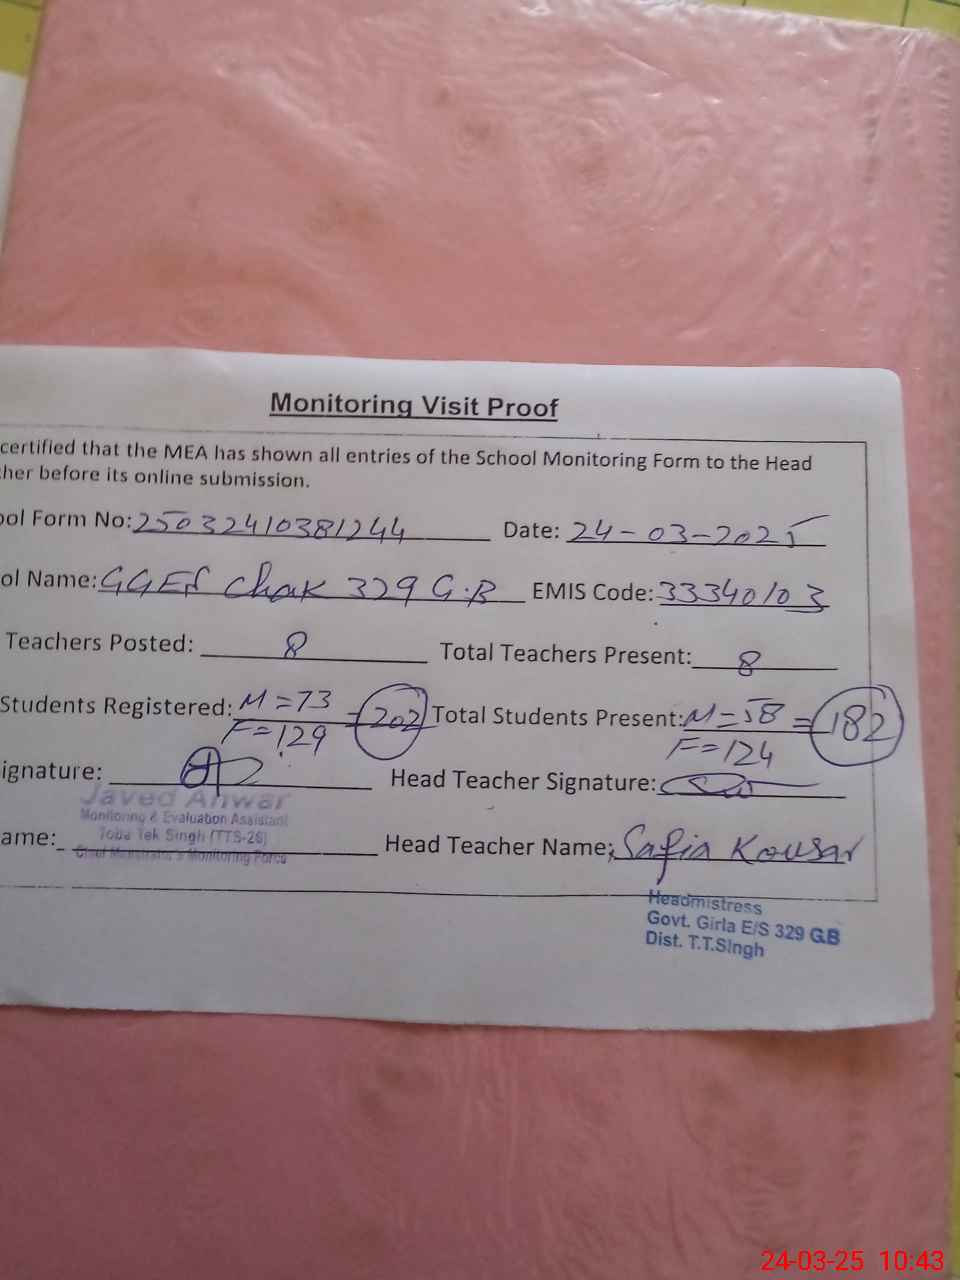 Monitoring Visit Proof
certified that the MEA has shown all entries of the School Monitoring Form to the Head
her before its online submission.
ool Form No: 25032410381244 Date: 24-03-2025
ol Name: GGES Chak 329 G.B EMIS Code: 33340103
Teachers Posted: 8 Total Teachers Present: 8
Students Registered: M=73 F=129 =202 Total Students Present: M=58 F=124 =182
ignature: Head Teacher Signature:
Javed Anwar
Monitoring & Evaluation Assistant
Toba Tek Singh (TTS-26)
Monitoring Force
ame: Head Teacher Name: Safia Kousar
Headmistress
Govt. Girls E/S 329 GB
Dist. T.T.Singh
24-03-25 10:43